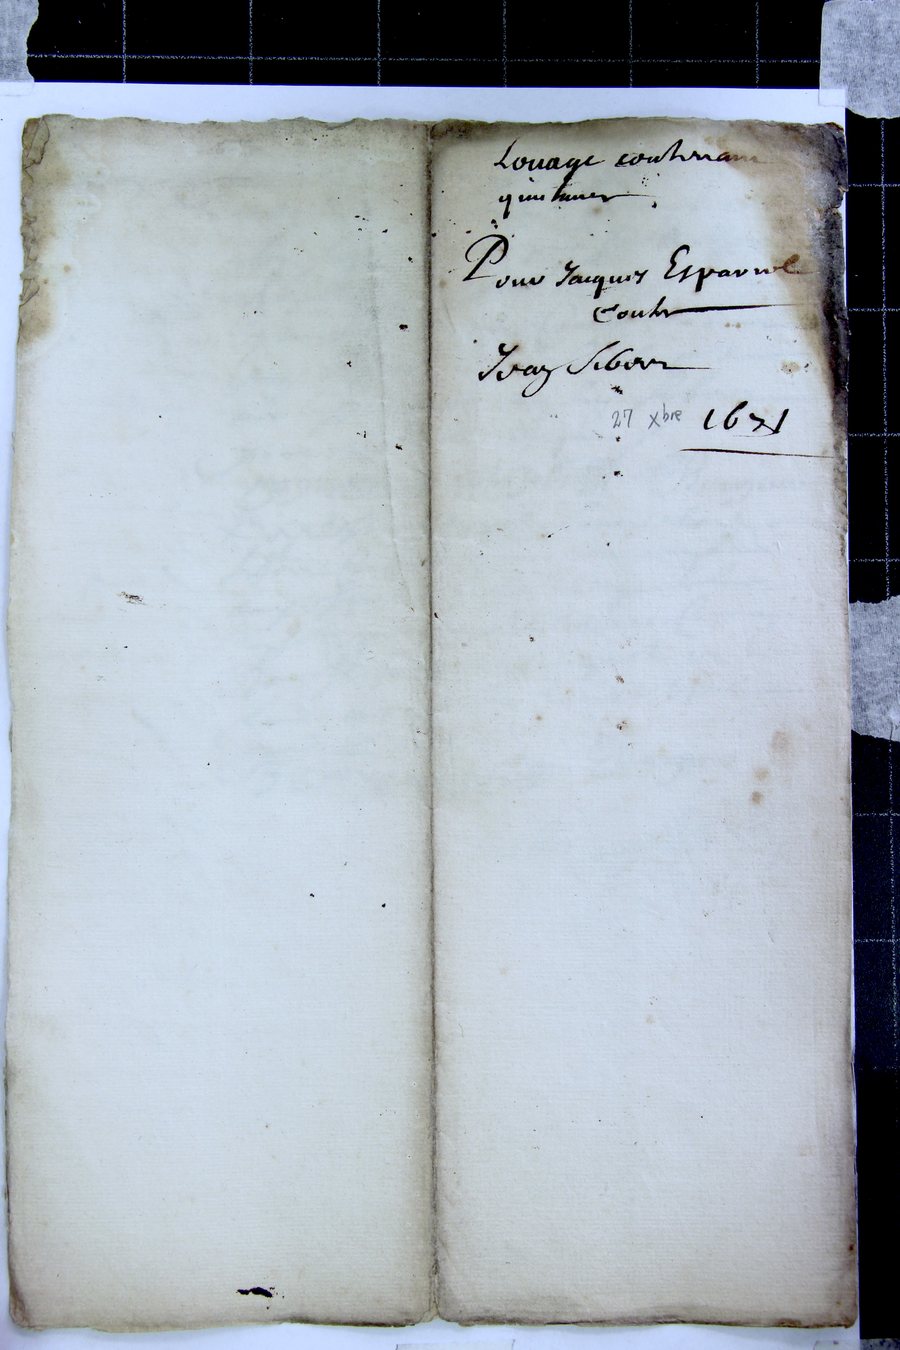 Louage contenant
quittance
Pour Jacques Espaniol
Contre
Jean
27 xbre 1671